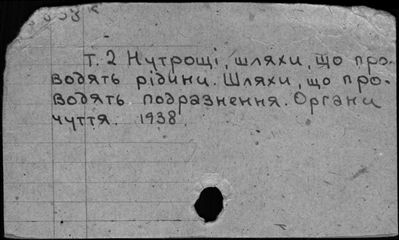 Т. 2 Нутрощі, шляхи, що про-
водять рідини. Шляхи, що про-
водять подразнення. Органи
чуття. 1938